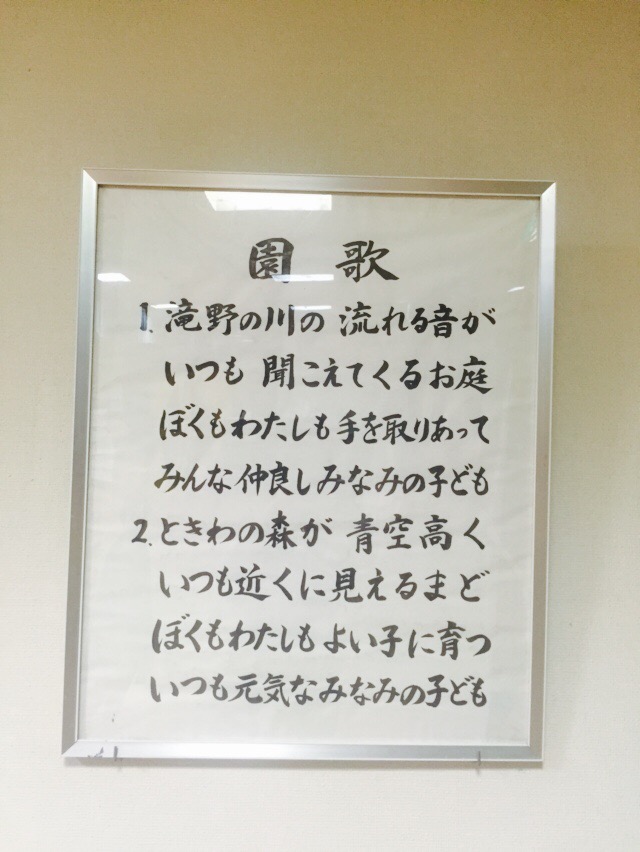 園 歌
1. 滝野の川の 流れる音が
いつも 聞こえてくるお庭
ぼくもわたしも手を取りあって
みんな仲良しみなみの子ども
2. ときわの森が 青空高く
いつも近くに見えるまど
ぼくもわたしもよい子に育つ
いつも元気なみなみの子ども